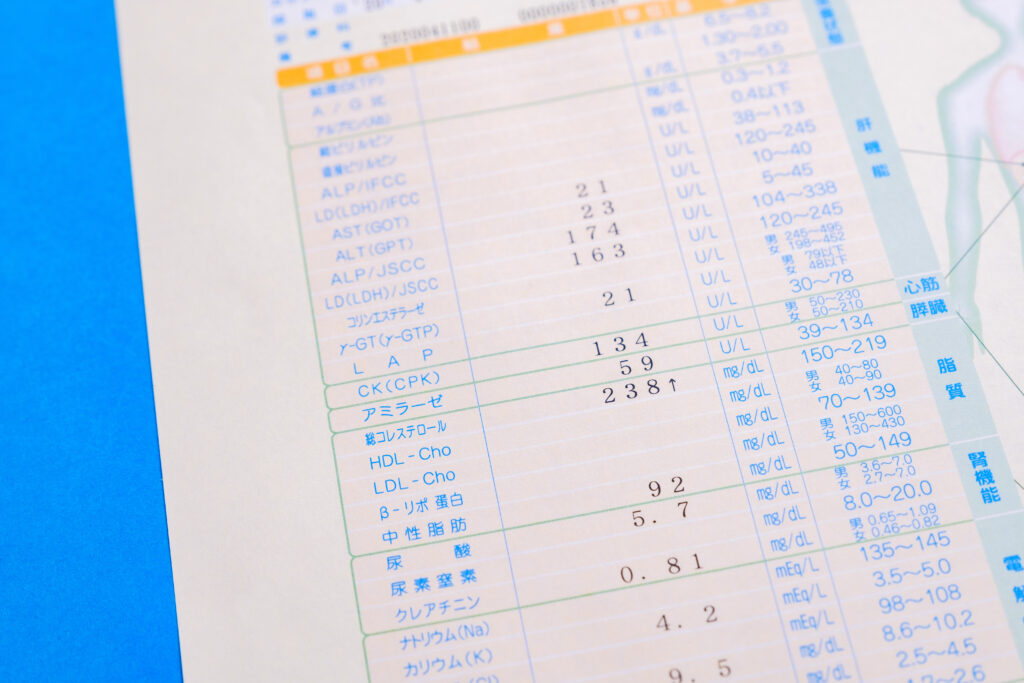 2020041100
A / G 比 1.30～2.00
アルブミン(Alb) g/dL 3.7～5.5
総ビリルビン mg/dL 0.3～1.2
直接ビリルビン mg/dL 0.4以下
ALP/IFCC U/L 38～113
LD(LDH)/IFCC U/L 120～245
AST(GOT) 21 U/L 10～40
ALT(GPT) 23 U/L 5～45
ALP/JSCC 174 U/L 104～338
LD(LDH)/JSCC 163 U/L 120～245
コリンエステラーゼ U/L 男 245～495 女 198～452
γ-GT(γ-GTP) 21 U/L 男 79以下 女 48以下
L A P U/L 30～78
CK(CPK) 134 U/L 男 50～230 女 50～210
アミラーゼ 59 U/L 39～134
総コレステロール 238↑ mg/dL 150～219
HDL-Cho mg/dL 男 40～80 女 40～90
LDL-Cho mg/dL 70～139
β-リポ蛋白 mg/dL 男 150～600 女 130～430
中性脂肪 92 mg/dL 50～149
尿酸 5.7 mg/dL 男 3.6～7.0 女 2.7～7.0
尿素窒素 mg/dL 8.0～20.0
クレアチニン 0.81 mg/dL 男 0.65～1.09 女 0.46～0.82
ナトリウム(Na) mEq/L 135～145
カリウム(K) 4.2 mEq/L 3.5～5.0
(Cl) mEq/L 98～108
9.5 mg/dL 8.6～10.2
mg/dL 2.5～4.5
1.7～2.6
肝機能
心筋
膵臓
脂質
腎機能
電解